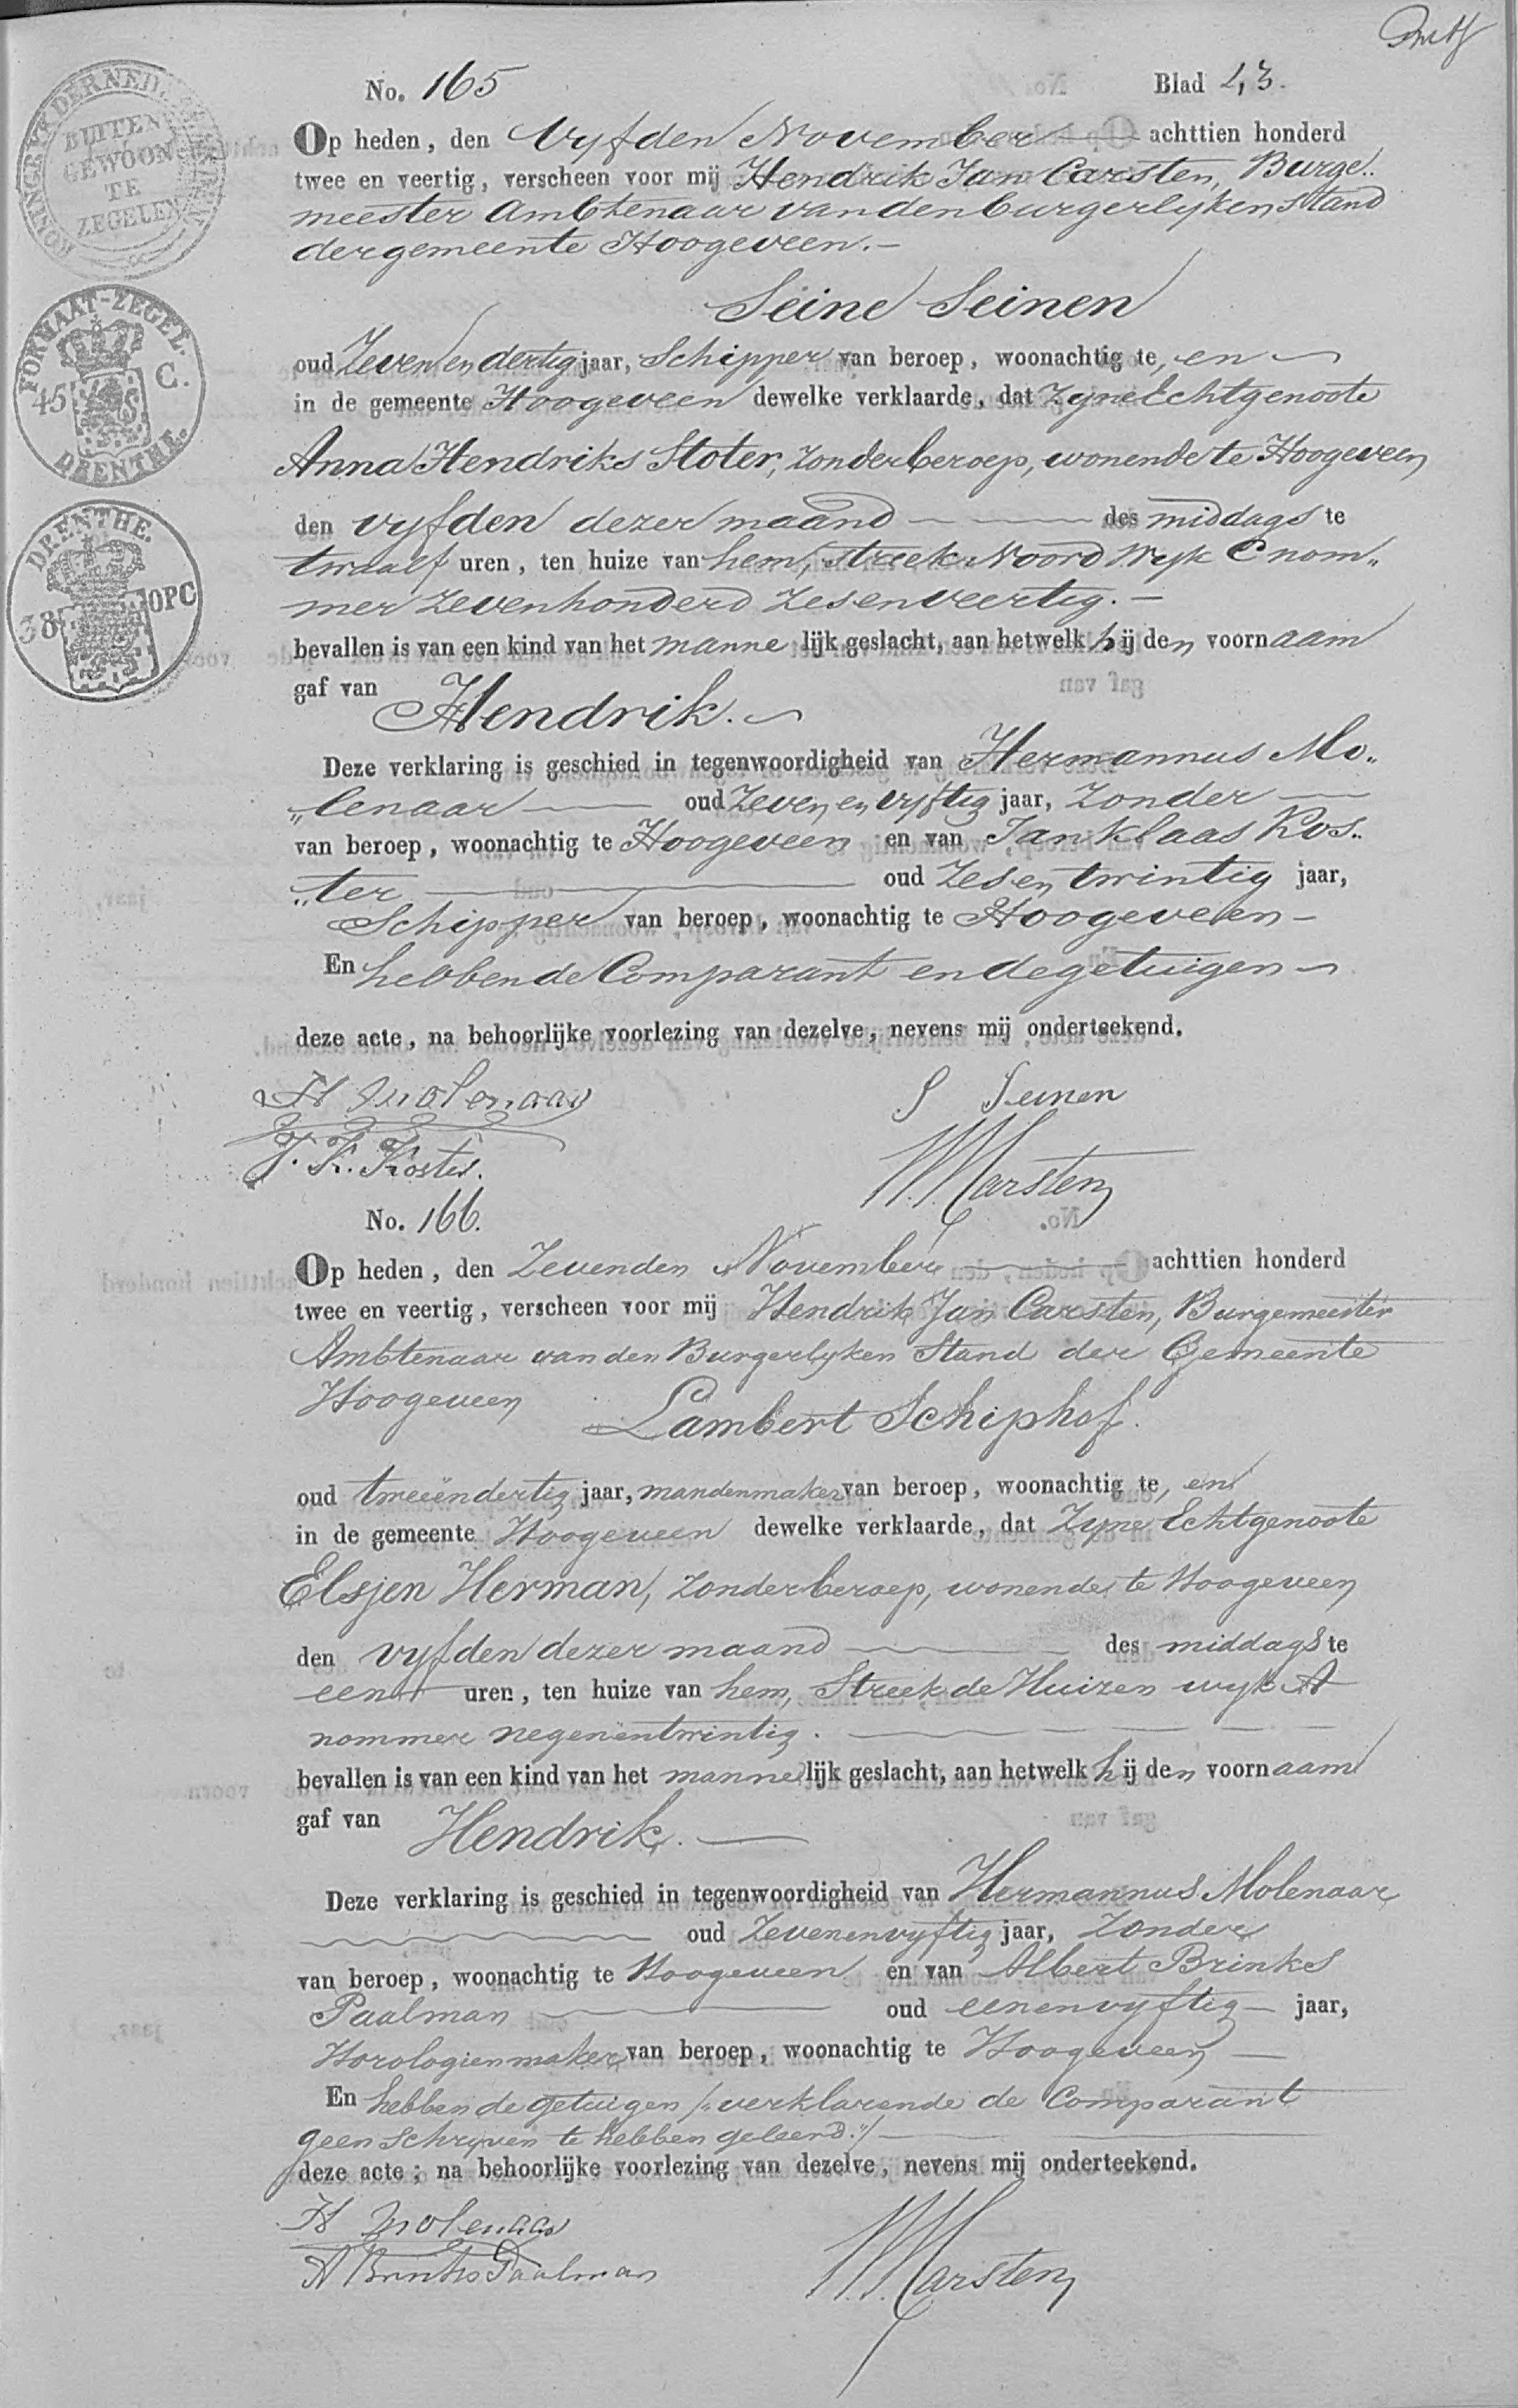 No. 165 Blad 43.
Op heden, den Vyfden November achttien honderd
twee en veertig, verscheen voor mij Hendrik Jan Carsten, Burge„
meester Ambtenaar van den burgerlyken Stand
der gemeente Hoogeveen.
Seine Seinen
oud Zeven en dertig jaar, Schipper van beroep, woonachtig te, en
in de gemeente Hoogeveen dewelke verklaarde, dat Zyne Echtgenoote
Anna Hendriks Stoter, Zonder beroep, wonende te Hoogeveen
den vyfden dezer maand des middags te
twaalf uren, ten huize van hem, streek Noord Wyk C nom„
mer Zevenhonderd Zesenveertig.
bevallen is van een kind van het mannelijk geslacht, aan hetwelk hij den voornaam
gaf van Hendrik.
Deze verklaring is geschied in tegenwoordigheid van Hermannus Mo„
„lenaar oud Zeven en vyftig jaar, Zonder
van beroep, woonachtig te Hoogeveen en van Jan Klaas Kos„
„ter oud Zes en twintig jaar,
Schipper van beroep, woonachtig te Hoogeveen
En hebben de Comparant en de getuigen
deze acte, na behoorlijke voorlezing van dezelve, nevens mij onderteekend.
H Molenaar S Seinen
J. K. Koster. HJCarsten
No. 166.
Op heden, den Zevenden November achttien honderd
twee en veertig, verscheen voor mij Hendrik Jan Carsten, Burgemeester
Ambtenaar van den Burgerlyken Stand der Gemeente
Hoogeveen Lambert Schiphof.
oud tweeëndertig jaar, mandenmaker van beroep, woonachtig te, en
in de gemeente Hoogeveen dewelke verklaarde, dat Zyne Echtgenoote
Elsjen Herman, Zonder beroep, wonende te Hoogeveen
den vyfden dezer maand des middags te
een uren, ten huize van hem, Streek de Huizen wyk A
nommer negenentwintig.
bevallen is van een kind van het mannelijk geslacht, aan hetwelk hij den voornaam
gaf van Hendrik.
Deze verklaring is geschied in tegenwoordigheid van Hermannus Molenaar
oud Zevenenvyftig jaar, Zonder
van beroep, woonachtig te Hoogeveen en van Albert Brinks
Paalman oud eenenvyftig jaar,
Horologienmaker van beroep, woonachtig te Hoogeveen
En hebben de getuigen /: verklarende de Comparant
geen Schryven te hebben geleerd :/
deze acte; na behoorlijke voorlezing van dezelve, nevens mij onderteekend.
H Molenaar
A Brinks Paalman HJCarsten
BUITEN
GEWOON
TE
ZEGELEN
FORMAAT-ZEGEL.
45 C.
DRENTHE.
DRENTHE.
38 OPC